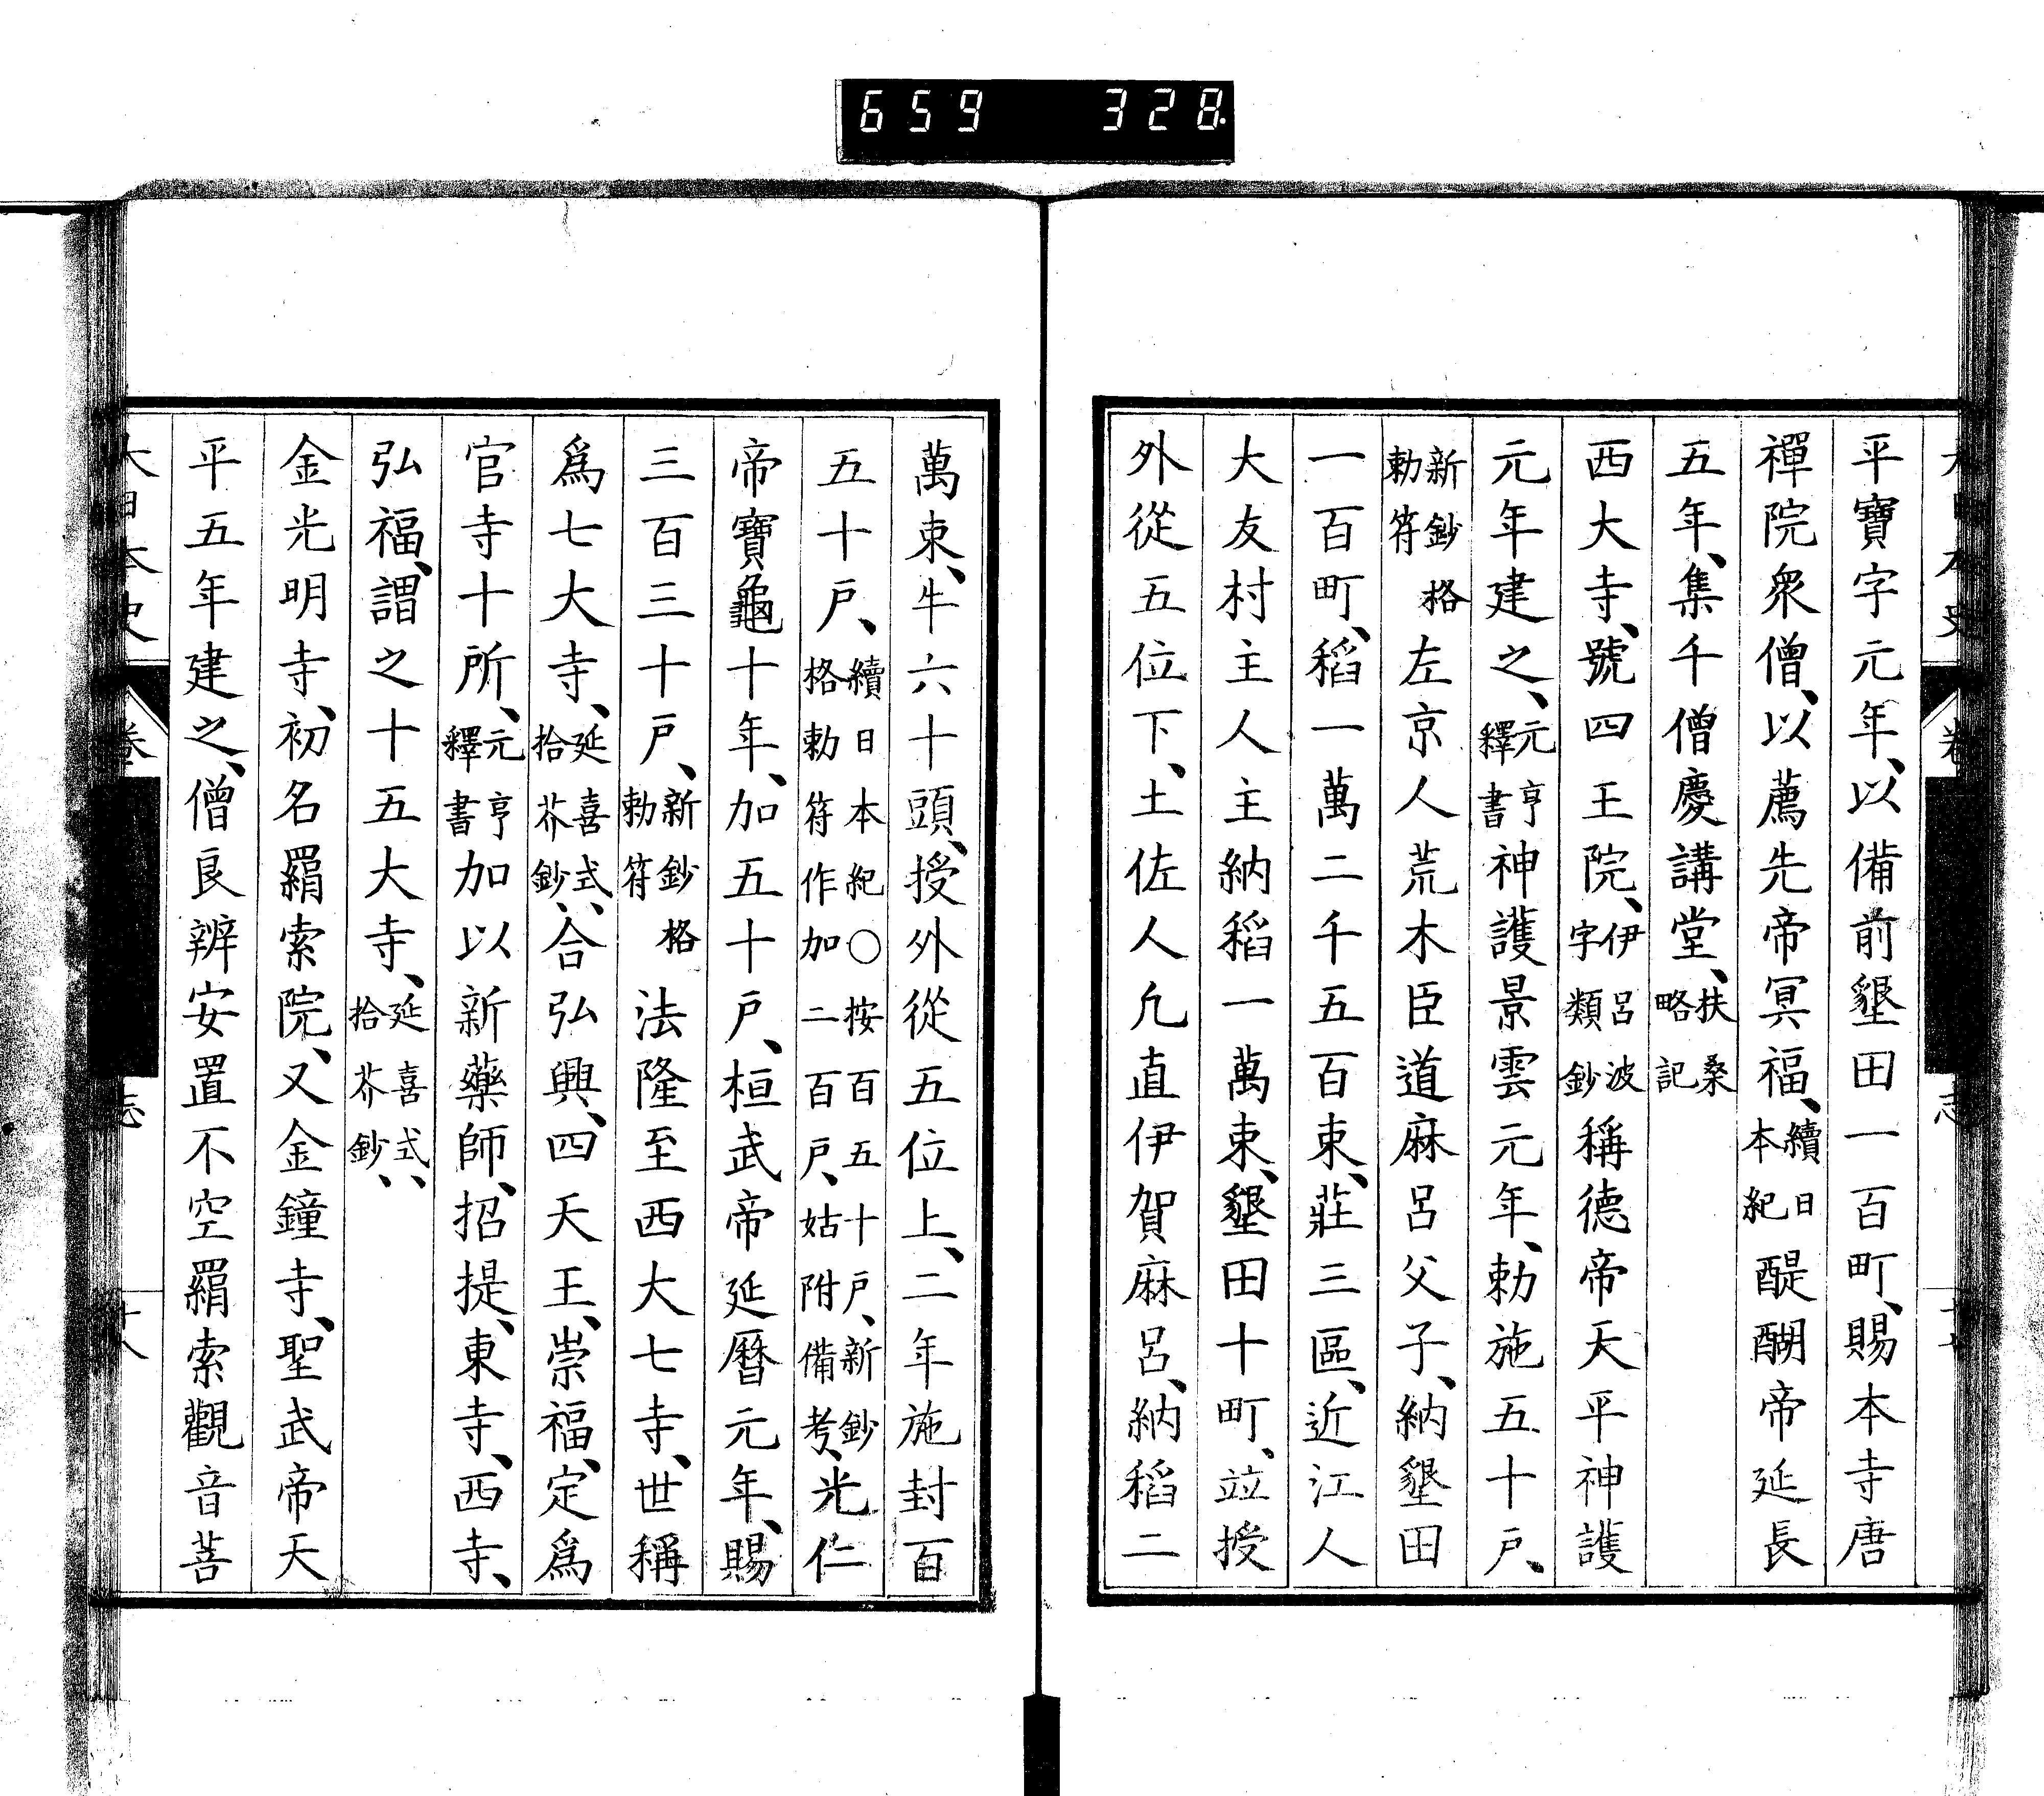 659 328
平寶字元年、以備前墾田一百町、賜本寺唐
禪院衆僧、以薦先帝冥福、續日本紀醍醐帝延長
五年、集千僧慶講堂、扶桑略記
西大寺、號四王院、伊呂波字類鈔稱德帝天平神護
元年建之、元亨釋書神護景雲元年、勅施五十戸、
新鈔格勅符左京人荒木臣道麻呂父子、納墾田
一百町、稻一萬二千五百束、莊三區、近江人
大友村主人主納稻一萬束、墾田十町、竝授
外從五位下、土佐人凡直伊賀麻呂、納稻二
萬束、牛六十頭、授外從五位上、二年施封百
五十戸、續日本紀○按百五十戸、新鈔格勅符作加二百戸、姑附備考、光仁
帝寶龜十年、加五十戸、桓武帝延曆元年、賜
三百三十戸、新鈔格勅符法隆至西大七寺、世稱
爲七大寺、延喜式、拾芥鈔、合弘興、四天王、崇福、定爲
官寺十所、元亨釋書加以新藥師、招提、東寺、西寺、
弘福、謂之十五大寺、延喜式、拾芥鈔、
金光明寺、初名羂索院、又金鐘寺、聖武帝天
平五年建之、僧良辨安置不空羂索觀音菩
大日本史 卷 志